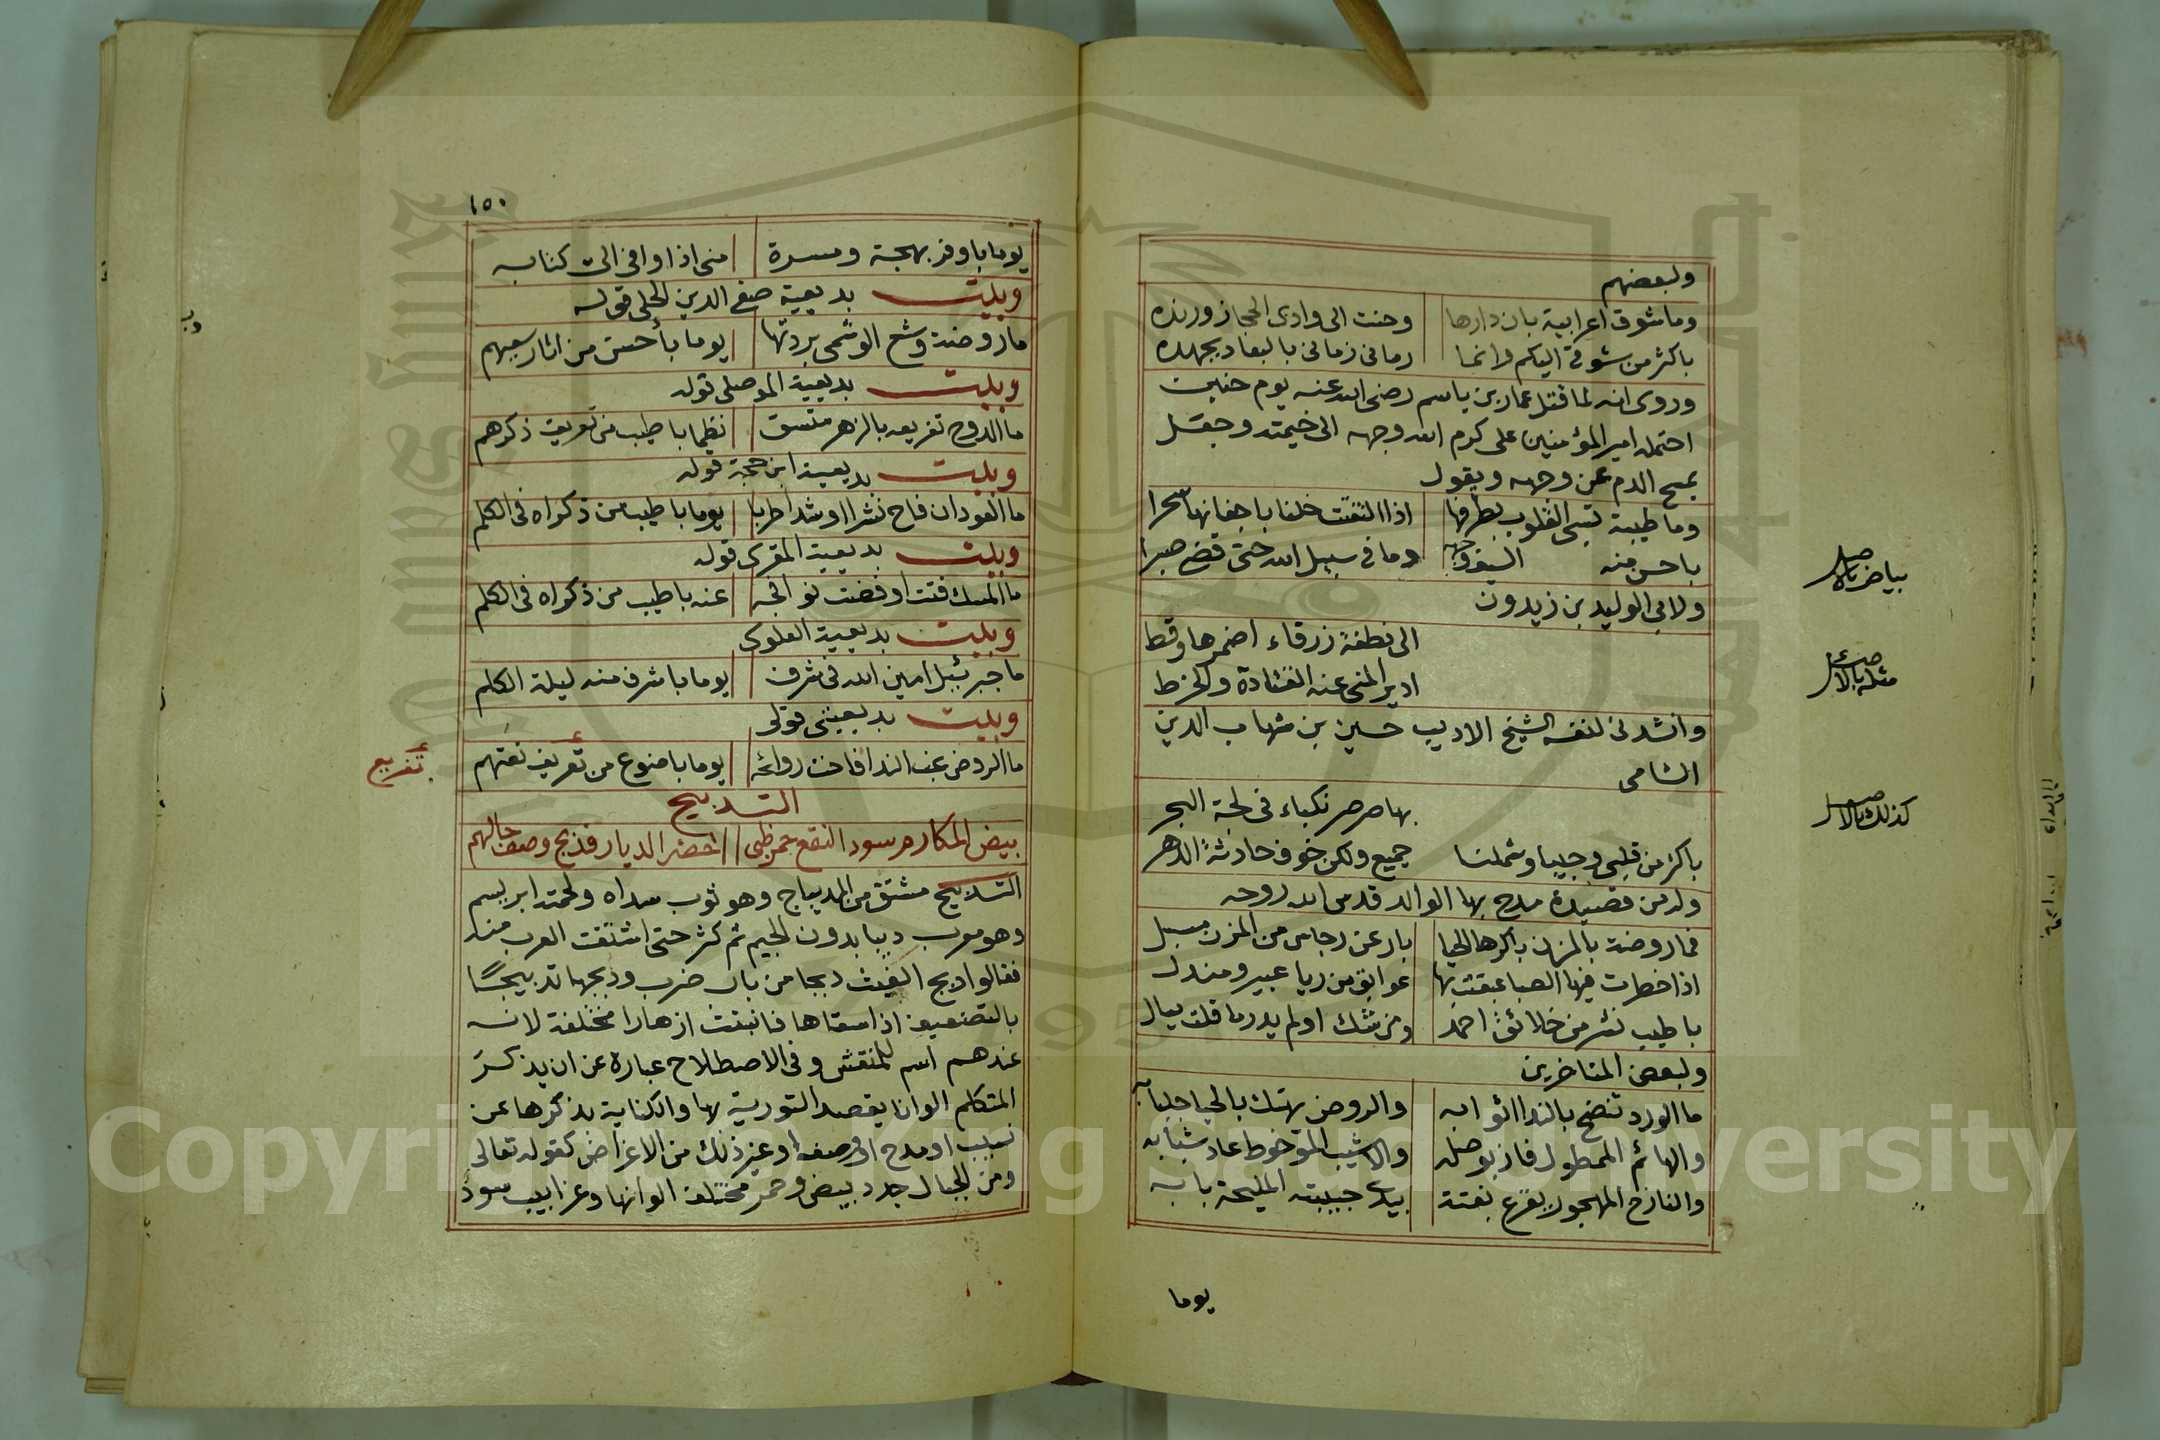 ولبعضهم
وما شوق اعرابية بان دارها وحنت الى وادى الحجاز ورنده
باكثر من شوقى اليكم وانما رمانى زمانى بالبعاد بجهده
وروى انه لما قتل عمار بن ياسر رضى الله عنه يوم حنين
احتمله امير المؤمنين على كرم الله وجهه الى خيمته وجعل
يمسح الدم عن وجهه ويقول
وما ظبية تسبى القلوب بطرفها اذا التفتت خلنا باجفانها سحرا
باحسن منه السيوف وجهه دما فى سبيل الله حتى قضى صبرا
بياض بالاصل
ولابى الوليد بن زيدون
الى نطفة زرقاء اضمرها وقط
ادير المنى عنه القتادة والخرط
مثله بالاصل
وانشدنى لنفسه الشيخ الاديب حسين بن شهاب الدين
الشامى
بها صرصر نكباء فى لجة البحر
كذلك بالاصل
باكثر من قلبى وجيبا وشملنا جميع ولكن خوف حادثة الدهر
وله من قصيدة مدح بها الوالد قدس الله روحه
فما روضة بالمزن باكرها الحيا بارعن رجاس من المزن مسبل
اذا خطرت فيها الصبا عبقت بها عوابق من ريا عبير ومندل
باطيب نشر من خلائق احمد ومن شك او لم يدر ما قلت يسال
ولبعض المتاخرين
ما الورد تنضح بالندا اثوابه والروض يهتك بالحيا جلبابه
والهائم الممطول فاز بوصله والاشيب المتوخوط عاد شبابه
والنازح المهجور يقرع بغتة بيدى حبيبته المليحة بابه
يوما
١٥٠
يوما باوفر بهجة ومسرة منى اذا وافى الى كتابه
وبيت بديعية صفى الدين الحلى قوله
ما روضة وشع الوشمى بردتها يوما بأحسن من اثار سعيهم
وبيت بديعية الموصلى قوله
ما الدوح تفريعه بالزهر متسق نظما باطيب من تعريف ذكرهم
وبيت بديعية ابن حجة قوله
ما العود ان فاح نشرا او شدا طربا يوما باطيب من ذكراه فى الكلم
وبيت بديعية المقرى قوله
ما المسك فتت او فضت نوافجه عنه باطيب من ذكراه فى الكلم
وبيت بديعية العلوى
ما جبرئيل امين الله فى شرف يوما باشرف منه ليلة الكلم
وبيت بديعيتى قولى
ما الروض غب الندا فاحت روائحه يوما باضوع من تعريف نعتهم
تفريع
التدبيج
بيض المكارم سود النقع حمر ظبى اخضر الديار فدبج وصف حالهم
التدبيج مشتق من الديباج وهو ثوب سداه ولحمته ابريسم
وهو معرب ديبا بدون الجيم ثم كثر حتى اشتقت العرب منه
فقالوا دبج الغيث دبجا من باب ضرب ودبجها تدبيجًا
بالتضعيف اذا سقاها فانبتت ازهارا مختلفة لانه
عندهم اسم للمنقش وفى الاصطلاح عبارة عن ان يذكر
المتكلم الوانا يقصد التورية بها والكناية بذكرها عن
نسيب او مدح او وصف او غير ذلك من الاغراض كقوله تعالى
ومن الجبال جدد بيض وحمر مختلف الوانها وغرابيب سود
Copyright © King Saud University